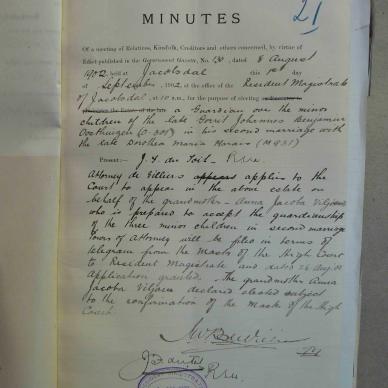 21
MINUTES
Of a meeting of Relations, Kinsfolk, Creditors and others concerned, by virtue of
Edict published in the Government Gazette, No. 130, dated 8 August
1902, held at Jacobsdal this 1st day
of September, 1902 at the office of the Resident Magistrate
of Jacobsdal, at 10 a.m., for the purpose of electing
a Guardian over the minor
children of the late Gerrit Johannes Benjamin
Oosthuizen (O.301) in his second marriage with
the late Dorothea Maria Marais (M931)
Present:— J. F. du Toit – R.M.
Attorney de Villiers appears applies to the
Court to appear in the above estate on
behalf of the grandmother – Anna Jacoba Viljoen
who is prepared to accept the guardianship
of the three minor children in second marriage
Power of Attorney will be filed in terms of
telegram from the Master of the High Court
to Resident Magistrate and dated 26 Aug. 02
Application granted. The grandmother Anna
Jacoba Viljoen declared elected subject
to the confirmation of the Master of the High
Court.
de Villiers
J. F. du Toit
R.M.